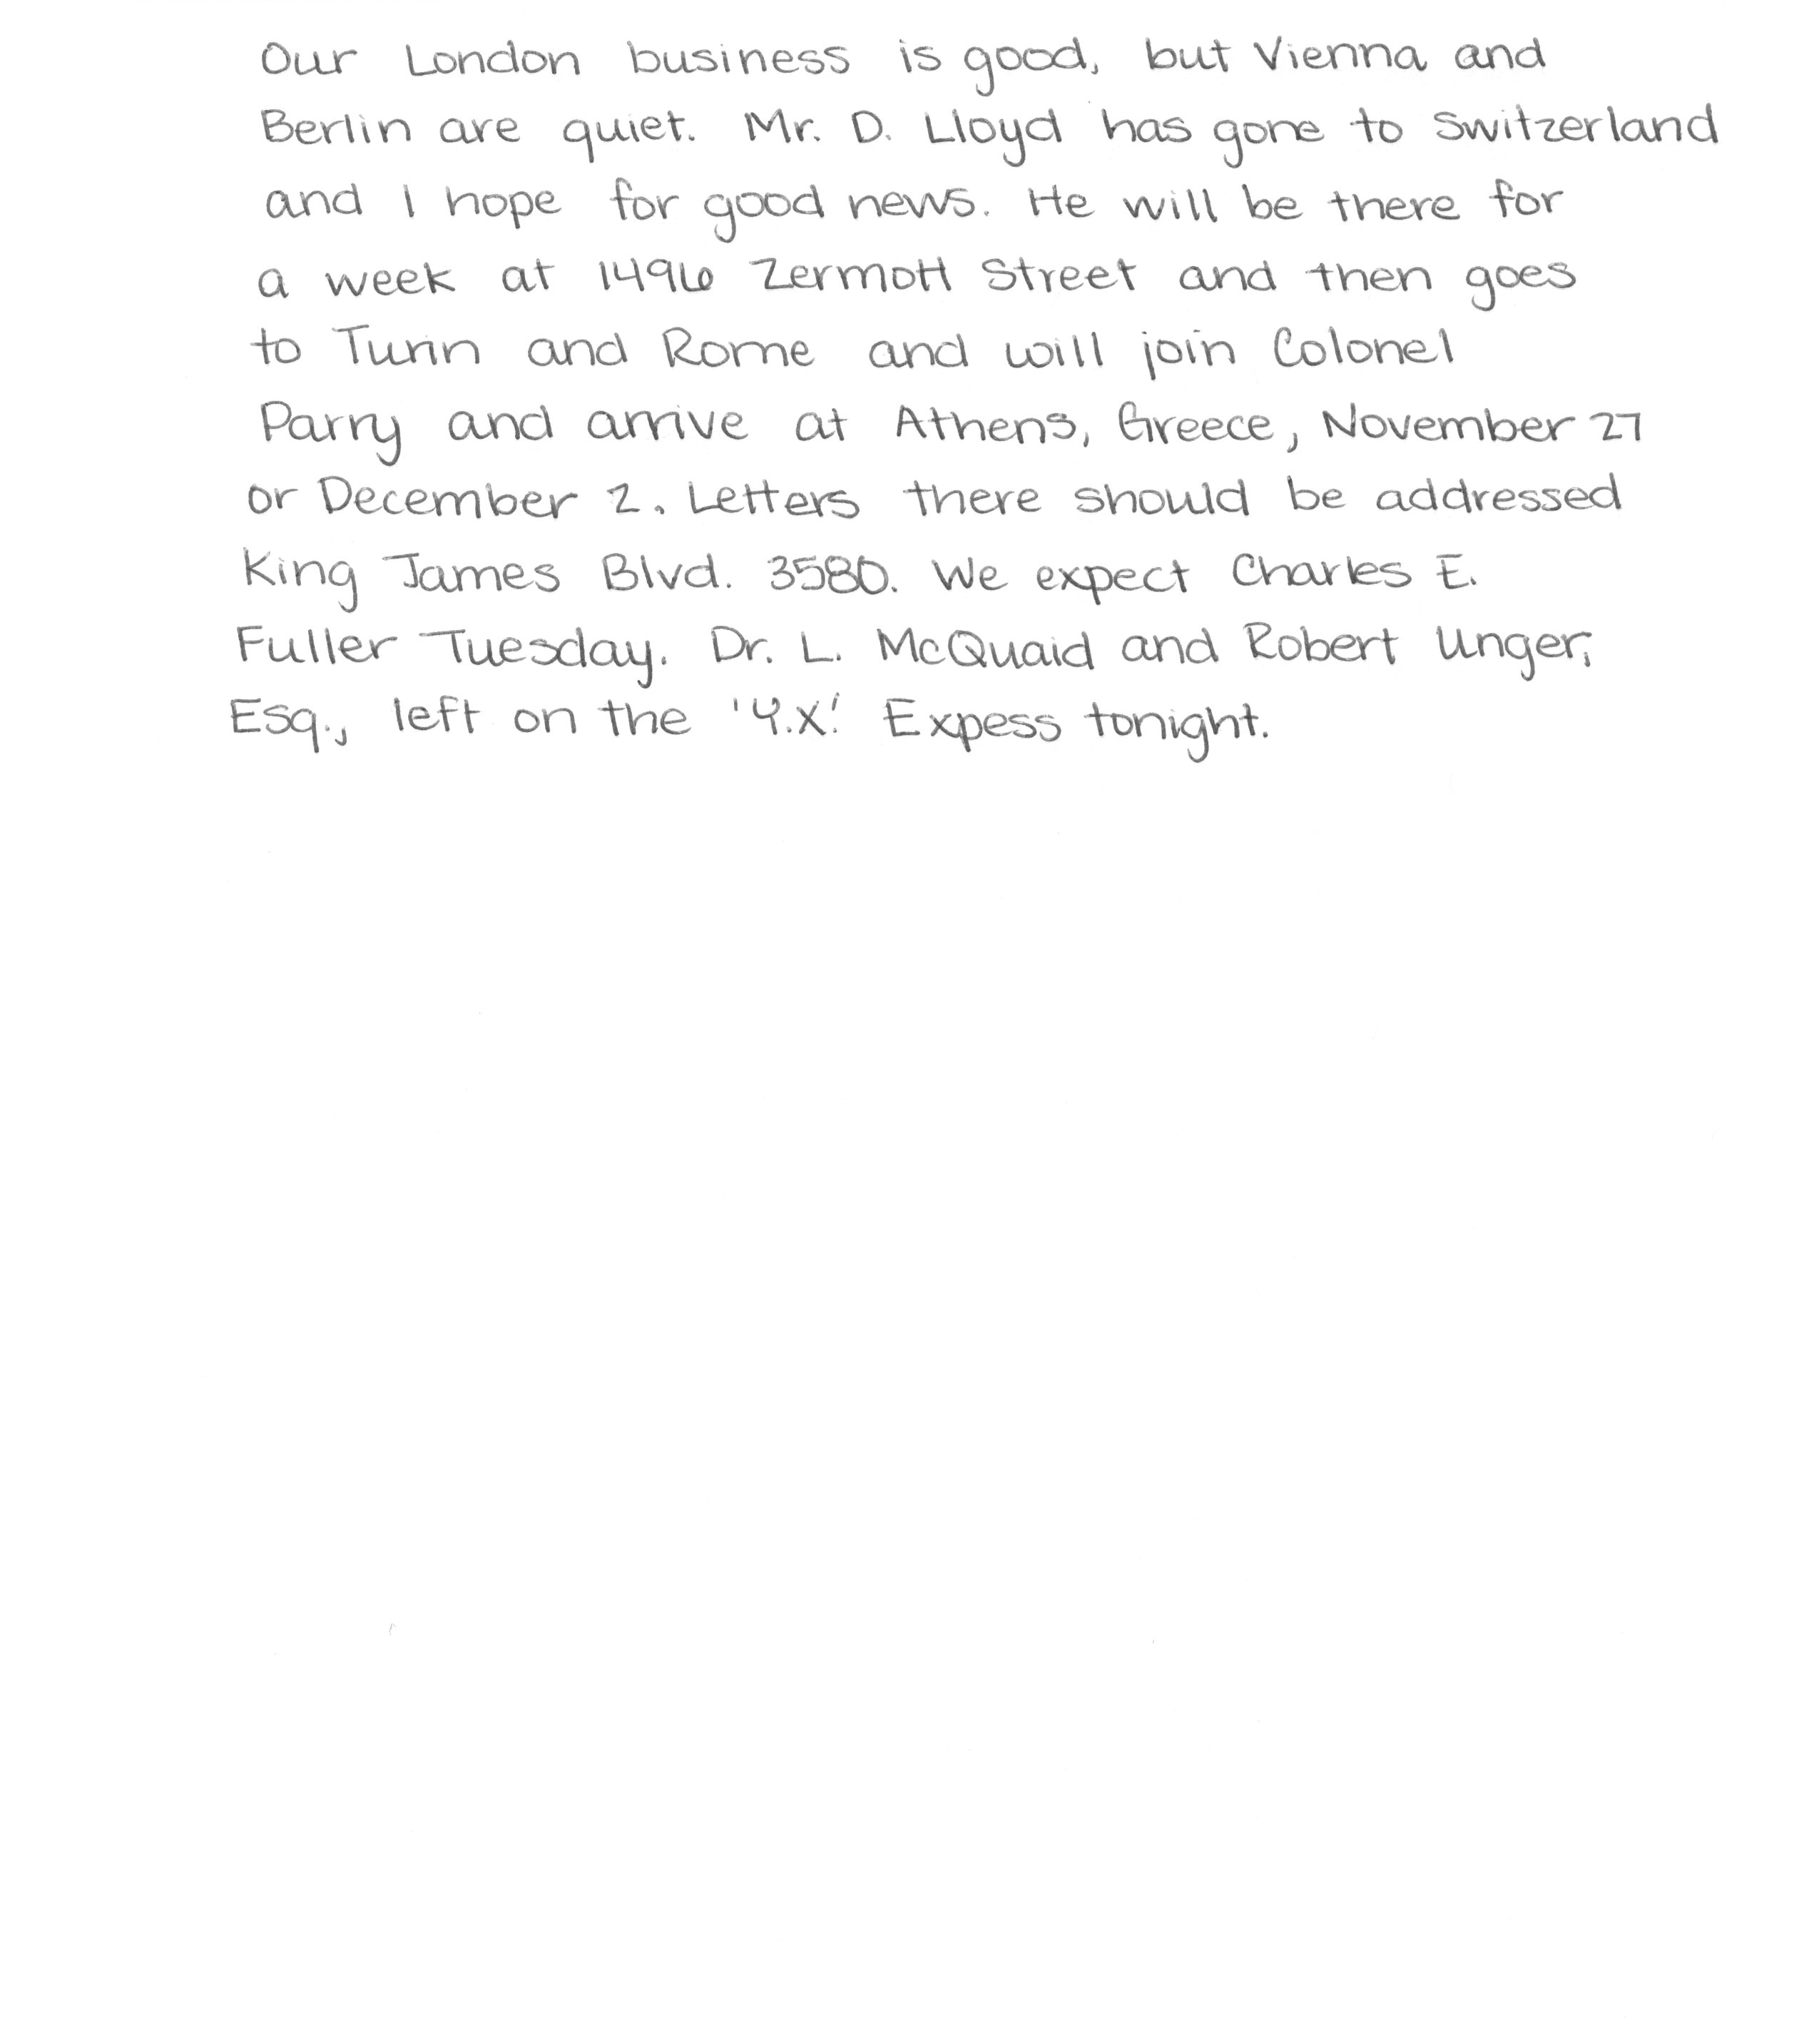 Our London business is good, but Vienna and
Berlin are quiet. Mr. D. Lloyd has gone to Switzerland
and I hope for good news. He will be there for
a week at 1496 Zermott Street and then goes
to Turin and Rome and will join Colonel
Parry and arrive at Athens, Greece, November 27
or December 2. Letters there should be addressed
King James Blvd. 3580. We expect Charles E.
Fuller Tuesday. Dr. L. McQuaid and Robert Unger,
Esq., left on the 'Y.X.' Expess tonight.